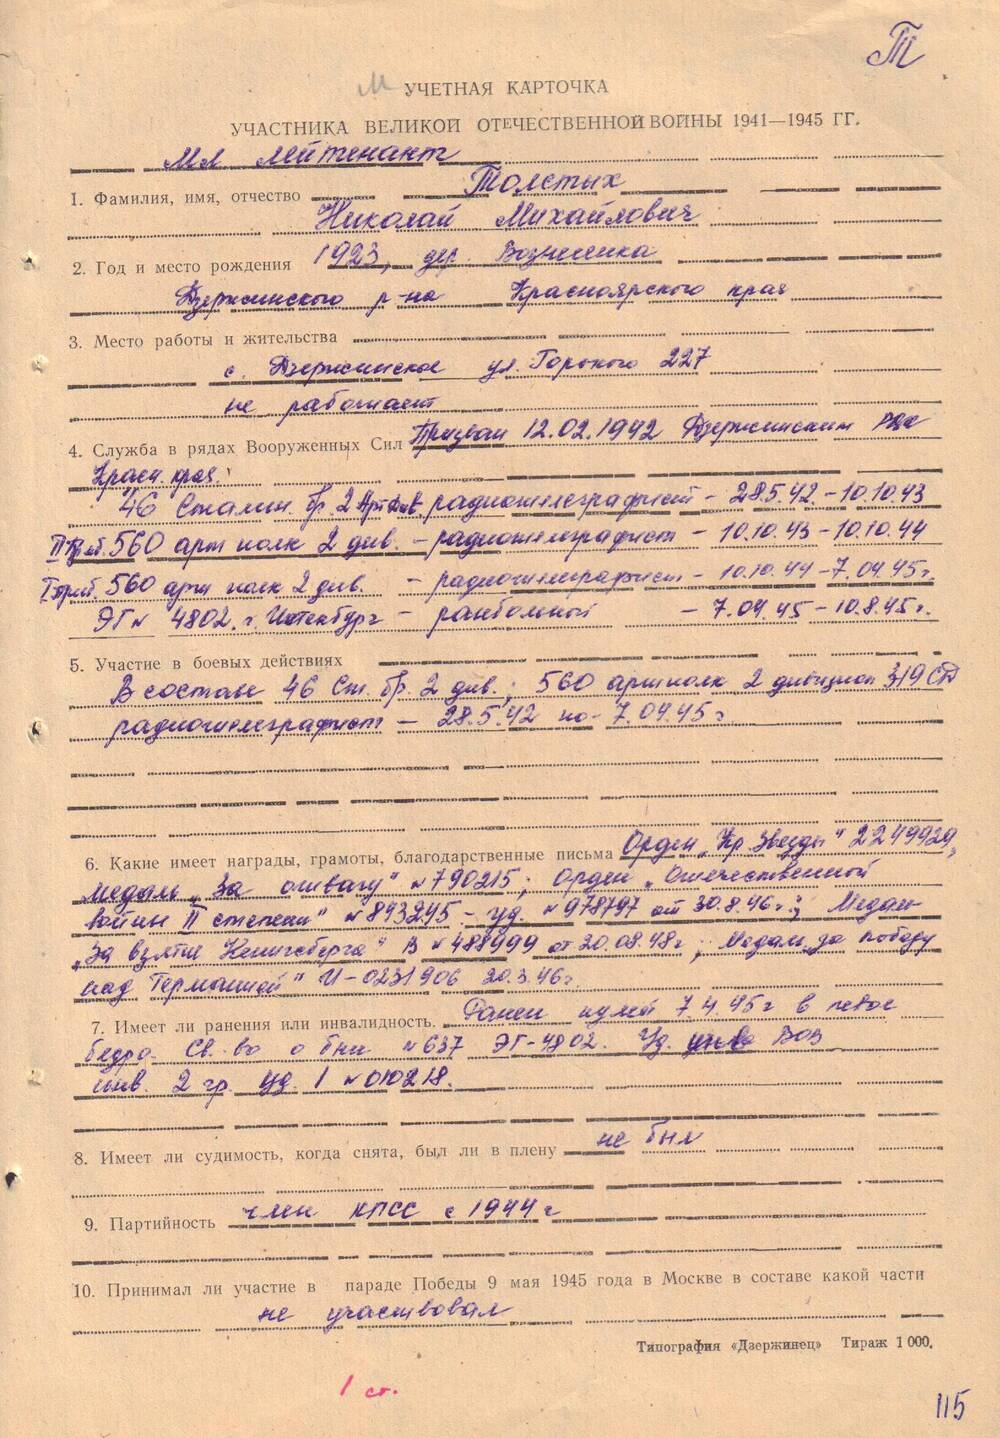 Т
М УЧЕТНАЯ КАРТОЧКА
УЧАСТНИКА ВЕЛИКОЙ ОТЕЧЕСТВЕННОЙ ВОЙНЫ 1941—1945 ГГ.
Мл лейтенант
1. Фамилия, имя, отчество Толстых
Николай Михайлович
2. Год и место рождения 1923, дер. Вознесенка
Дзержинского р-на Красноярского края
3. Место работы и жительства
с. Дзержинское ул. Горького 227
не работает
4. Служба в рядах Вооруженных Сил Призван 12.02.1942 Дзержинским РВК
Красн. края.
46 Сталин. бр. 2 Арт див. радиотелеграфист - 28.5.42 - 10.10.43
II Приб. 560 арт полк 2 див. - радиотелеграфист - 10.10.43 - 10.10.44
I Приб. 560 арт полк 2 див. - радиотелеграфист - 10.10.44 - 7.04.45г.
ЭГ № 4802. г. - ранбольной - 7.04.45 - 10.8.45г.
5. Участие в боевых действиях
В составе 46 Ст. бр. 2 див.; 560 арт полк 2 дивизион 319 СД
радиотелеграфист - 28.5.42 по - 7.04.45 г.
6. Какие имеет награды, грамоты, благодарственные письма Орден „Кр. Звезды" 2249929,
медаль „За отвагу" № 790215; Орден „Отечественной
войны II степени" № 893245 - уд. № 978797 от 30.8.46г.; Медаль
„За взятие Кенигсберга" В № 488999 от 20.08.48г; Медаль „за победу
над Германией" И-0231906 20.3.46г.
7. Имеет ли ранения или инвалидность. Ранен пулей 7.4.45г в левое
бедро. Св. во о бни № 637 ЭГ-4802. Уд. ВОВ
инв. 2 гр. уд. 1 № 010218.
8. Имеет ли судимость, когда снята, был ли в плену не был
9. Партийность член КПСС с 1944 г
10. Принимал ли участие в параде Победы 9 мая 1945 года в Москве в составе какой части
не участвовал
Типография «Дзержинец» Тираж 1 000.
1 ст.
115